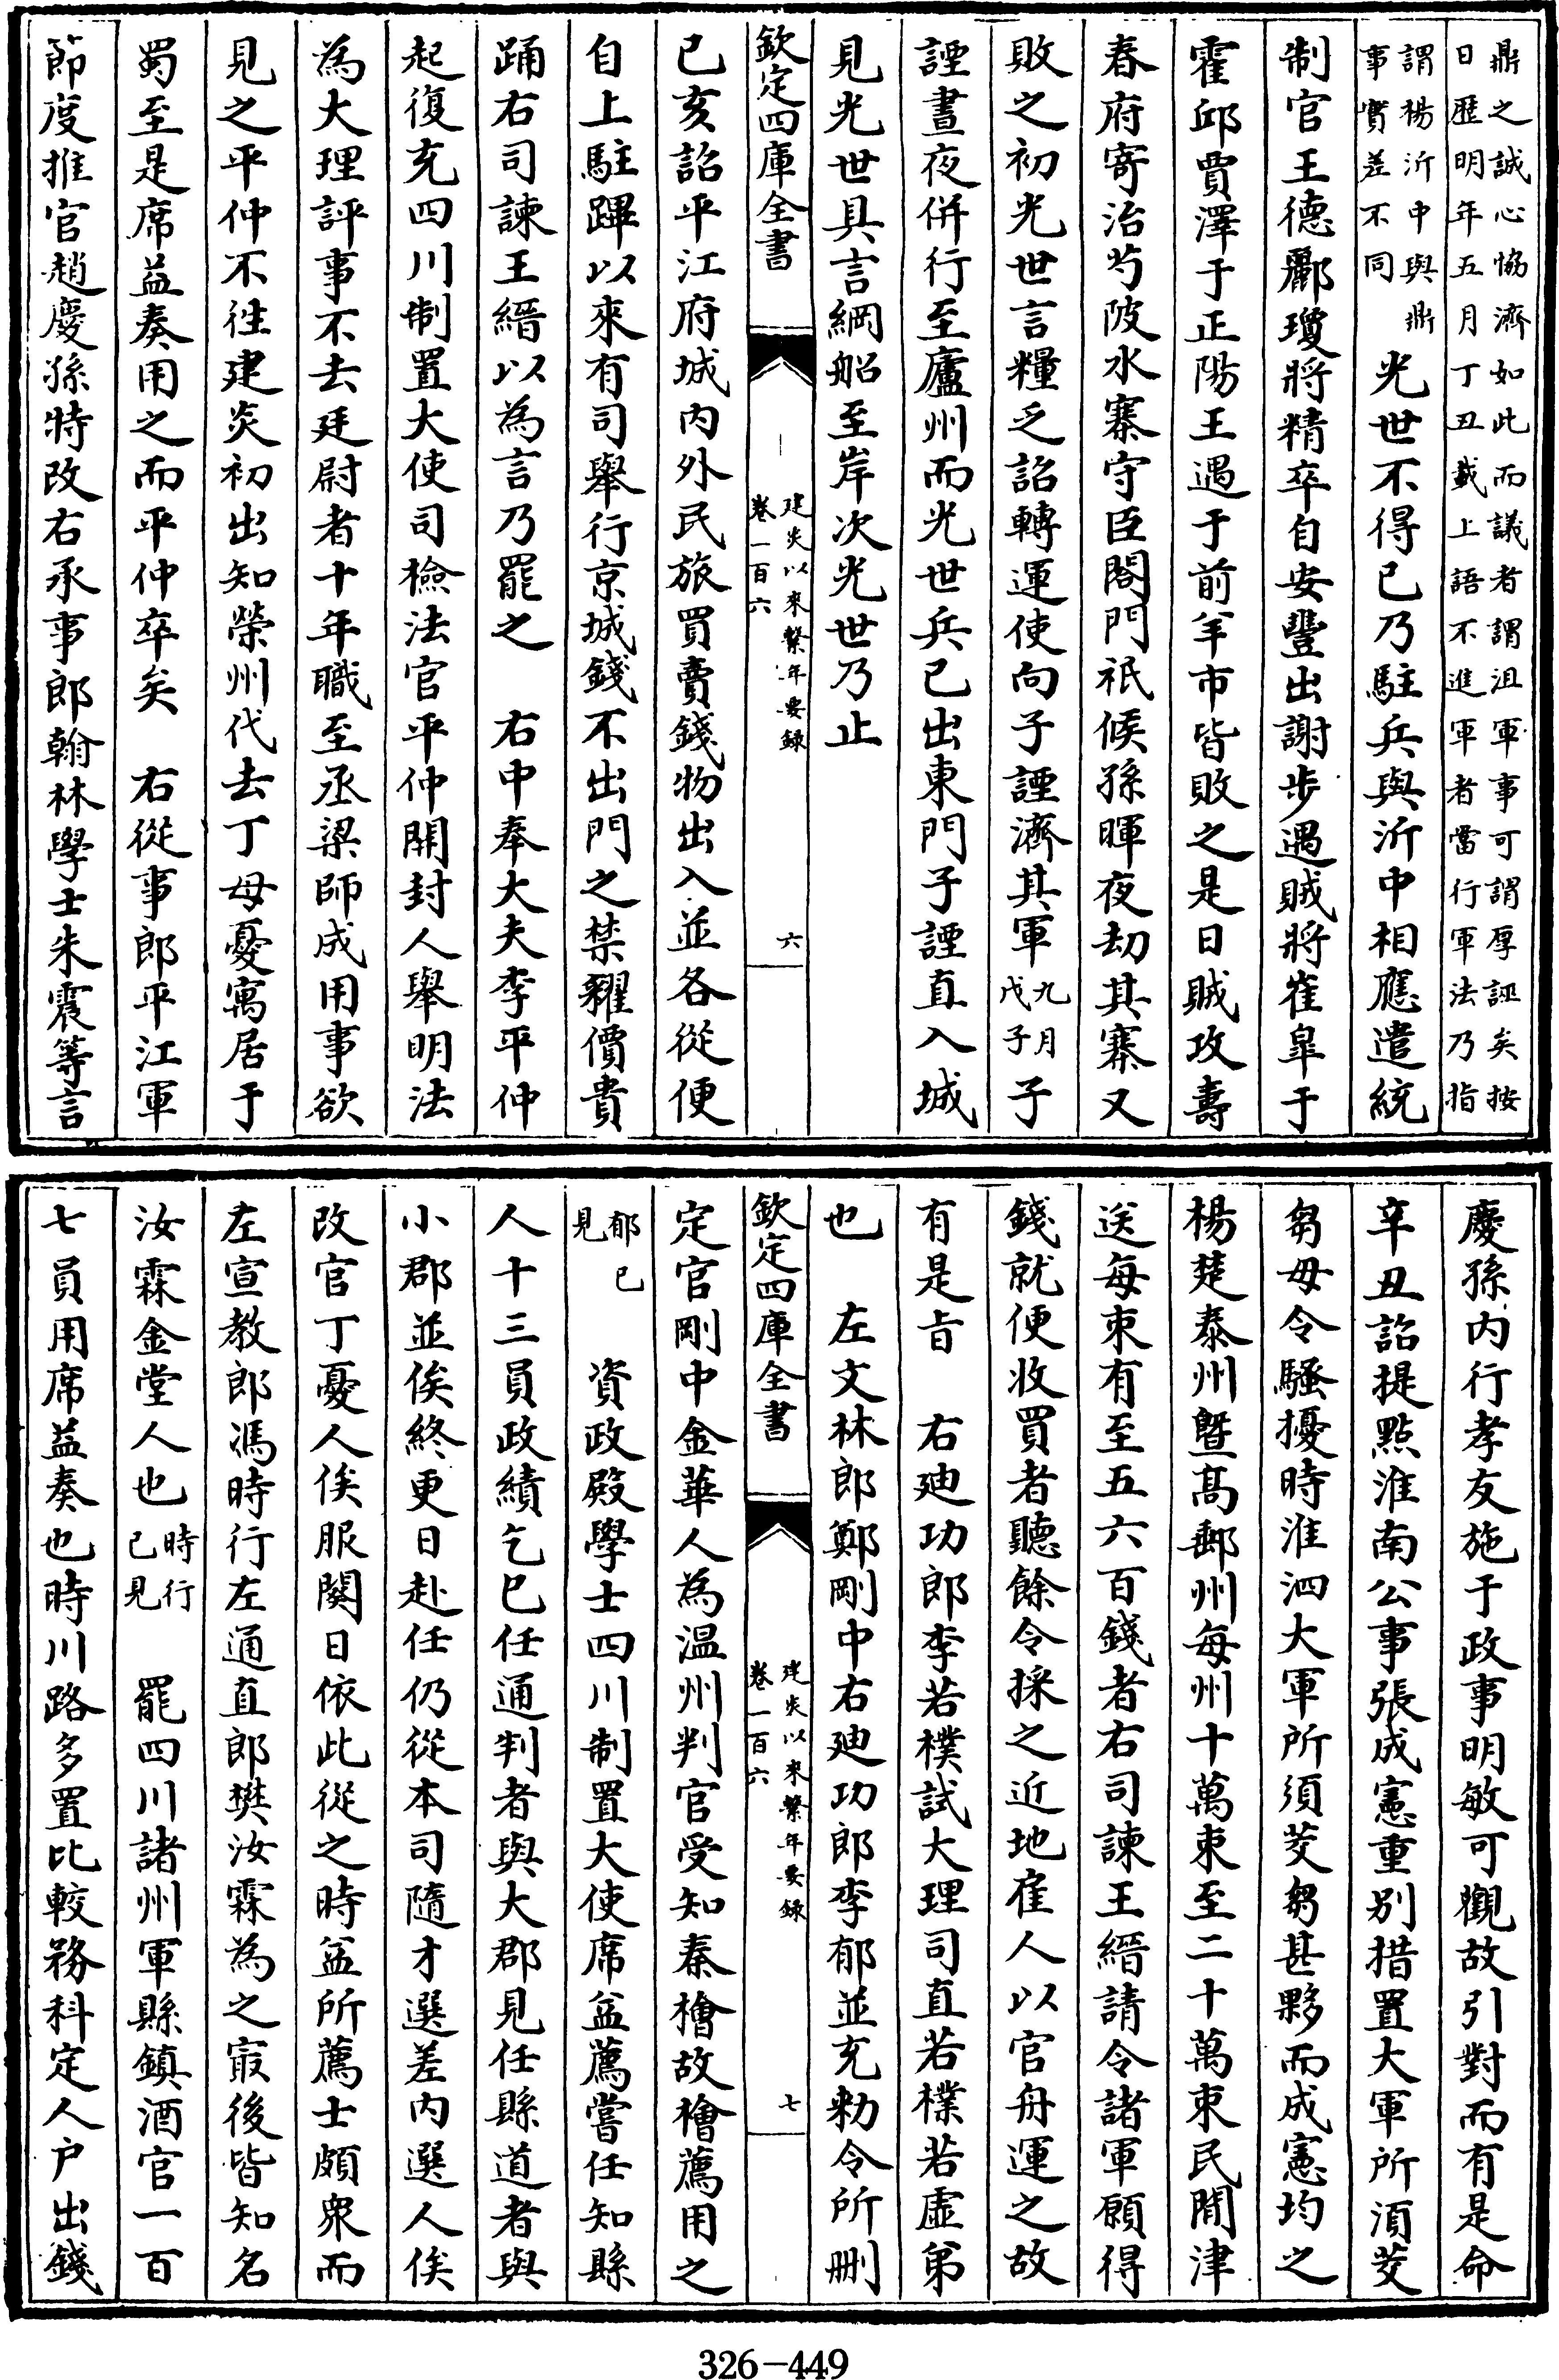 鼎之誠心協濟如此而議者謂沮軍事可謂厚誣矣按
日歷明年五月丁丑載上語不進軍者當行軍法乃指
謂楊沂中與鼎
事實差不同
光世不得已乃駐兵與沂中相應遣統
制官王德酈瓊將精卒自安豐出謝步遇賊將崔臯于
霍邱賈澤于正陽王遇于前羊市皆敗之是日賊攻壽
春府寄治芍陂水寨守臣閤門祇候孫暉夜劫其寨又
敗之初光世言糧乏詔轉運使向子諲濟其軍九月戊子子
諲晝夜併行至廬州而光世兵已出東門子諲直入城
見光世具言綱船至岸次光世乃止
欽定四庫全書
建炎以來繫年要錄
卷一百六
六
己亥詔平江府城内外民旅買賣錢物出入並各從便
自上駐蹕以來有司舉行京城錢不出門之禁糴價貴
踊右司諫王縉以為言乃罷之 右中奉大夫李平仲
起復充四川制置大使司檢法官平仲開封人舉明法
為大理評事不去廷尉者十年職至丞梁師成用事欲
見之平仲不往建炎初出知榮州代去丁母憂寓居于
蜀至是席益奏用之而平仲卒矣 右從事郎平江軍
節度推官趙慶孫特改右承事郎翰林學士朱震等言
慶孫内行孝友施于政事明敏可觀故引對而有是命
辛丑詔提點淮南公事張成憲重别措置大軍所湏茭
芻毋令騷擾時淮泗大軍所須茭芻甚夥而成憲均之
楊楚泰州暨髙郵州每州十萬束至二十萬束民間津
送每束有至五六百錢者右司諫王縉請令諸軍願得
錢就便收買者聽餘令採之近地雇人以官舟運之故
有是旨 右廸功郎李若樸試大理司直若樸若虛弟
也 左文林郎鄭剛中右廸功郎李郁並充勑令所删
欽定四庫全書
建炎以來繫年要錄
卷一百六
七
定官剛中金華人為温州判官受知秦檜故檜薦用之
郁已見 資政殿學士四川制置大使席益薦嘗任知縣
人十三員政績乞已任通判者與大郡見任縣道者與
小郡並俟終更日赴任仍從本司隨才選差内選人俟
改官丁憂人俟服闋日依此從之時益所薦士頗衆而
左宣教郎馮時行左通直郎樊汝霖為之㝡後皆知名
汝霖金堂人也時行已見 罷四川諸州軍縣鎮酒官一百
七員用席益奏也時川路多置比較務科定人户出錢
326-449